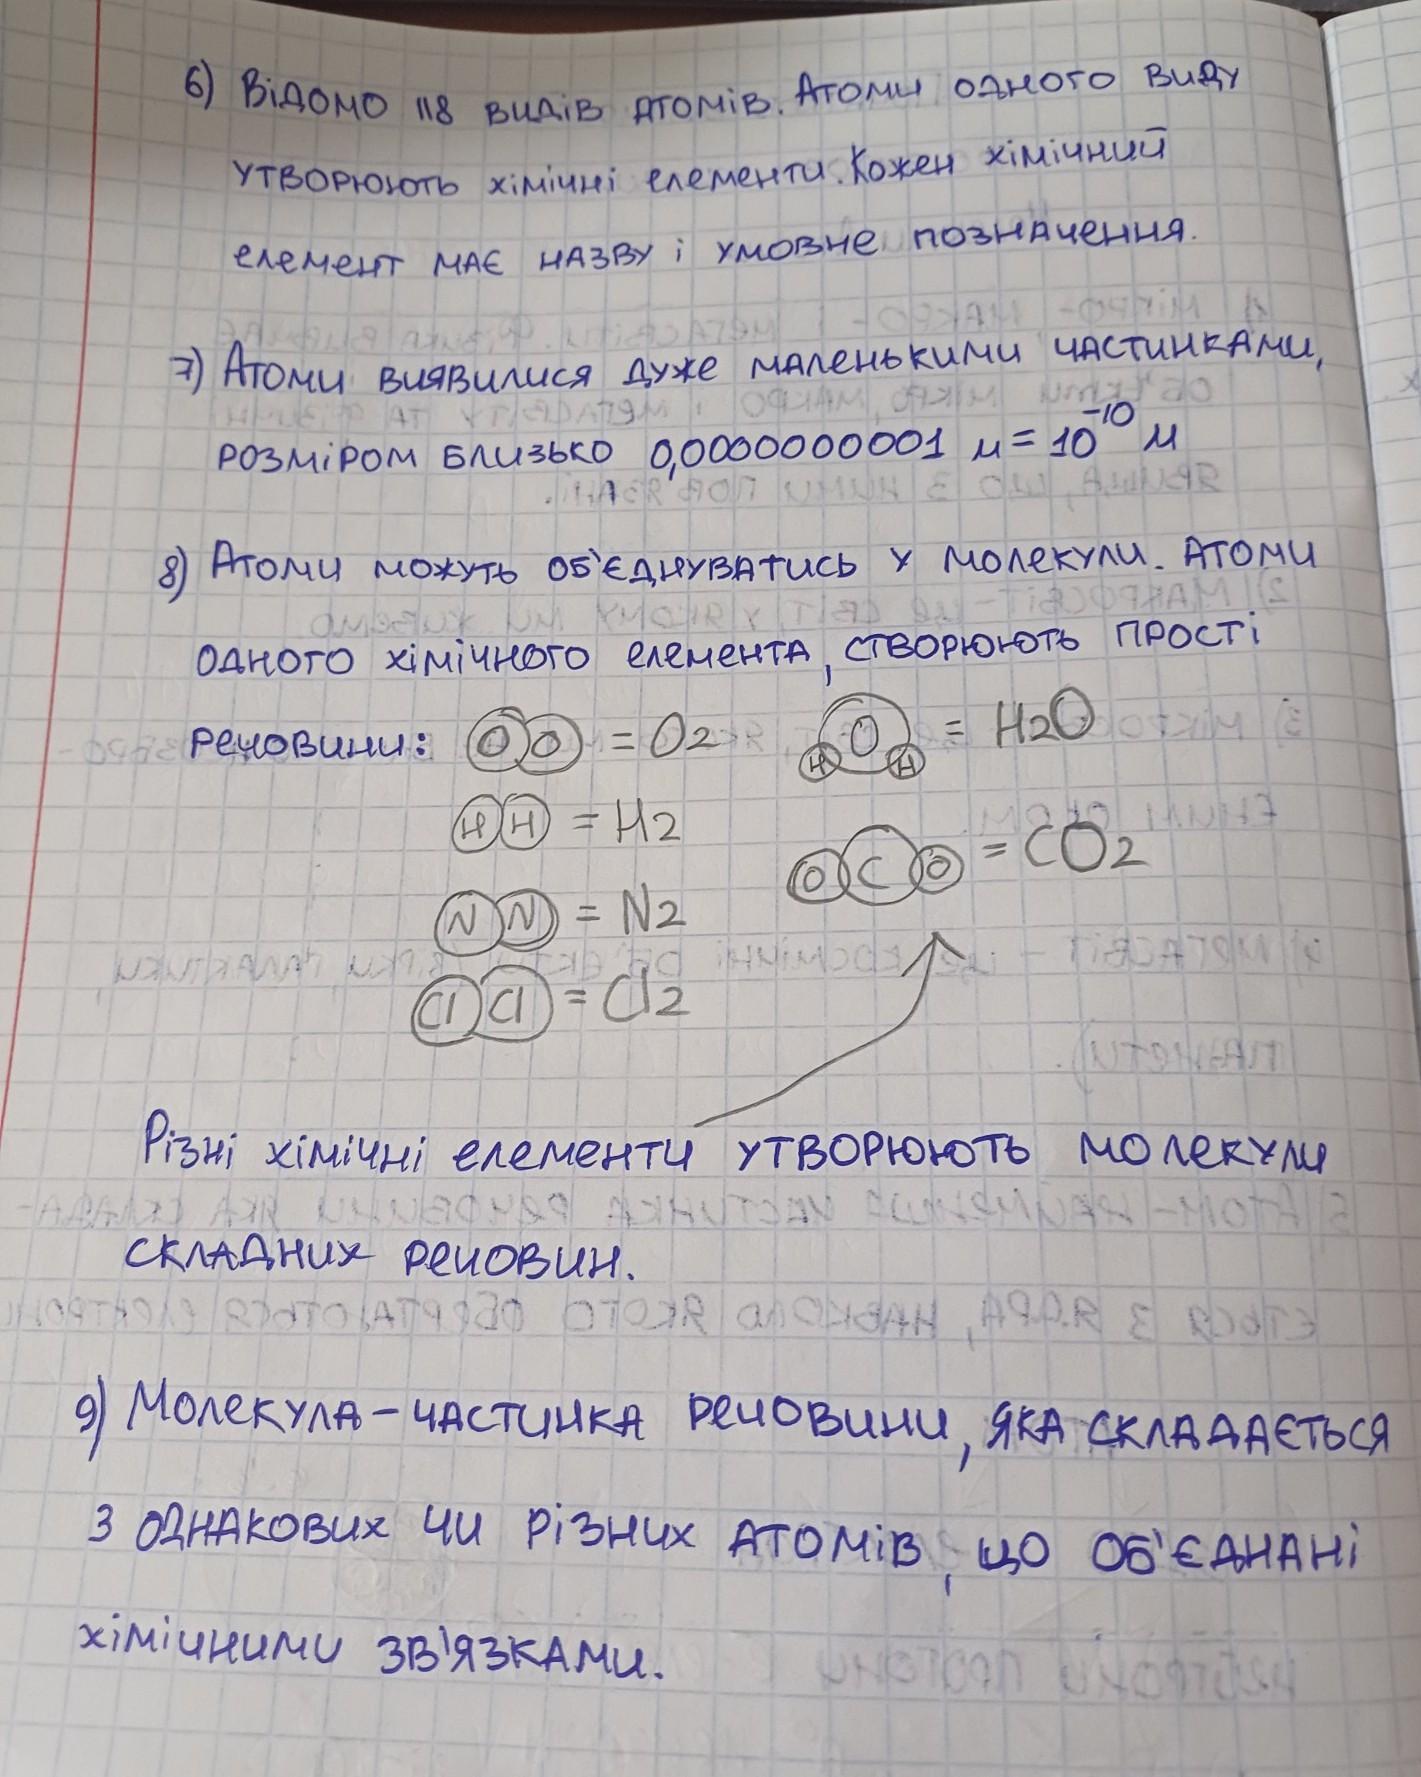 6) Відомо 118 видів атомів. Атоми одного виду
утворюють хімічні елементи. Кожен хімічний
елемент має назву і умовне позначення.
7) Атоми виявилися дуже маленькими частинками,
розміром близько 0,0000000001 м = 10⁻¹⁰ м
8) Атоми можуть об'єднуватись у молекули. Атоми
одного хімічного елемента, створюють прості
речовини: O O = O2 H O H = H2O
H H = H2
O C O = CO2
N N = N2
Cl Cl = Cl2
Різні хімічні елементи утворюють молекули
складних речовин.
9) Молекула - частинка речовини, яка складається
з однакових чи різних атомів, що об'єднані
хімічними зв'язками.